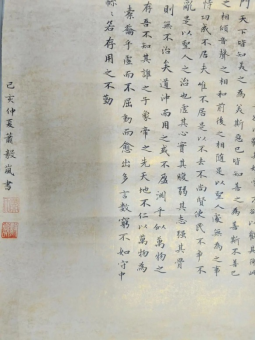 門天下皆知美之為美斯惡已皆知善之為善斯不善已
之相傾音聲之相和前後之相隨是以聖人處無為之事
恃功成不居夫唯不居是以不去不尚賢使民不爭不
亂是以聖人之治也虛其心實其腹弱其志強其骨
則無不治矣道沖而用之或不盈淵乎似萬物之
存吾不知其誰之子象帝之先天地不仁以萬物為
橐籥乎虛而不屈動而愈出多言數窮不如守中
綿若存用之不勤
己亥仲夏蕭毅嵐書